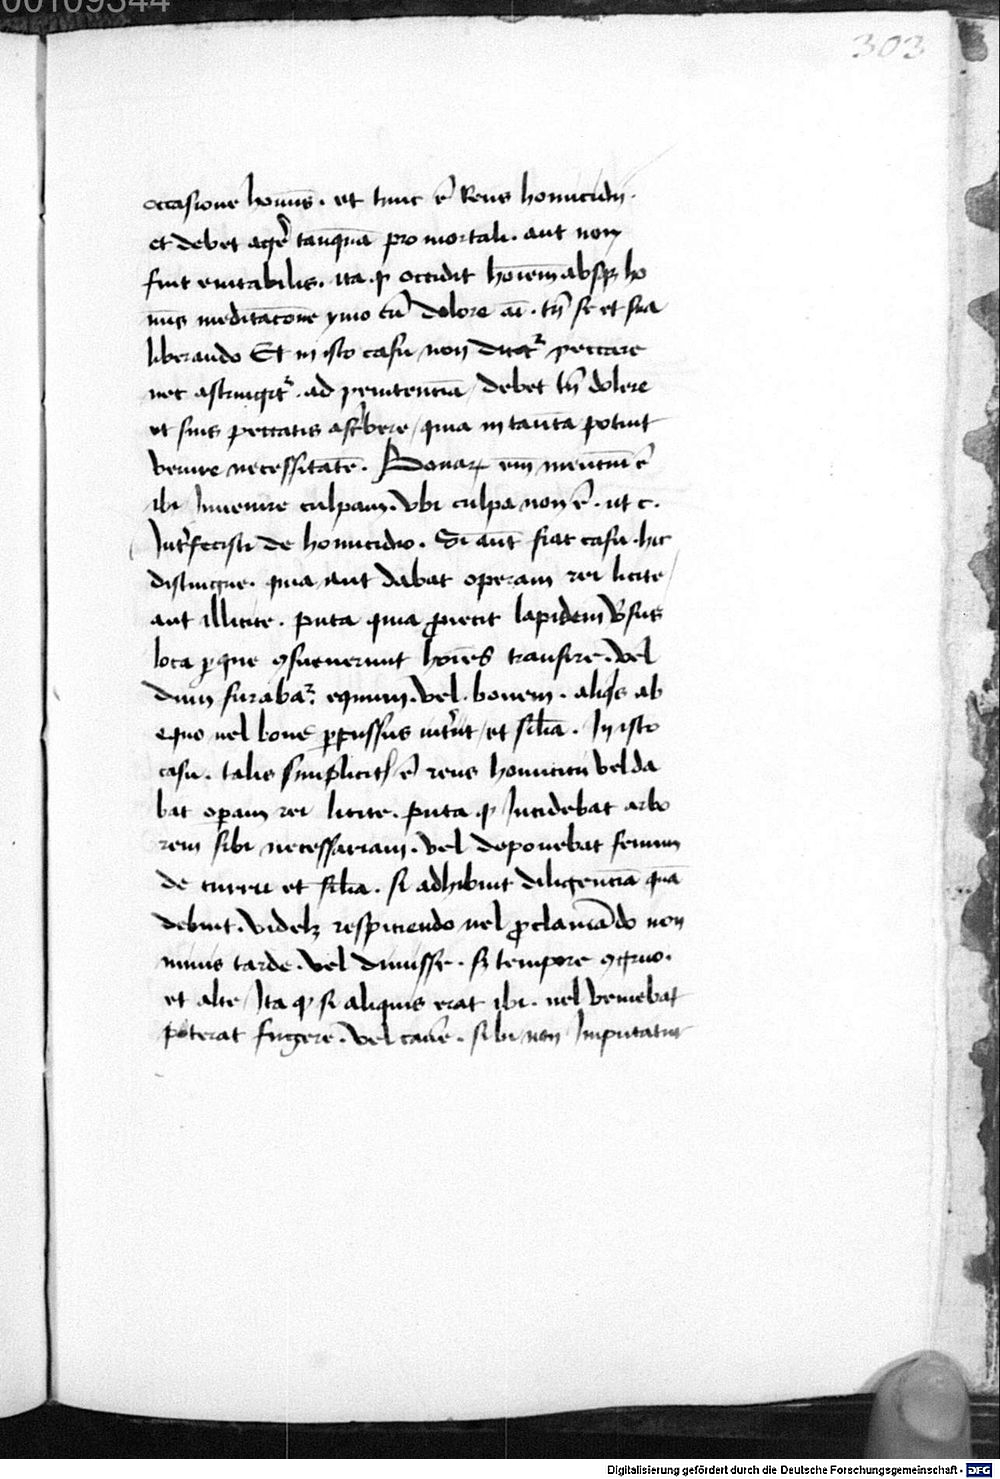 00109344
303
occasione homīs . et tunc ē Reus homicidij .
et debet agē tanquā pro mortali . aut non
fuit euitabilis . ita . ꝙ occidit hoīem absqꝫ ho
mīs meditacōne ymo cū dolore aī . tn̄ se et sua
liberando Et in isto casu non dicitᷣ peccare
nec astringitᷣ . ad penitenciā / debet tn̄ dolere
et suis peccatis ascͥbere / quia in tantā potuit
venire necessitatē . Bonarꝝ em̄ mencium ē
ibi Inuenire culpam . vbi culpa non ē . ut c .
Intͥfecisti de homicidio . Si aūt fiat casu . hic
distingue . quia aut dabat operam rei licite /
aut illicite . puta quia ꝓiecit lapidem v̓sus
loca ꝑ que ꝯsueuerunt hoīes transire . vel
dum furabaᷣ . equum . vel . bouem . aliqͥs ab
equo uel boue ꝑcussus intͥijt / et sil̄ia . In isto
casu . talis simplicitͥ ē reus homicitij vel da
bat oꝑam rei licite . puta . ꝙ Incidebat arbo
rem sibi necessariam . vel deponebat fenum
de curru et sil̄ia . si adhibuit diligenciā quā
debuit . videlꝫ respiciendo uel ꝓclamādo non
nimis tarde . vel dimisse . sꝫ tempore ꝯgruo .
et alte / Ita ꝙ si aliquis erat ibi . uel veniebat
poterat fugere . vel cauē . sibi non Imputatur
Digitalisierung gefördert durch die Deutsche Forschungsgemeinschaft - DFG